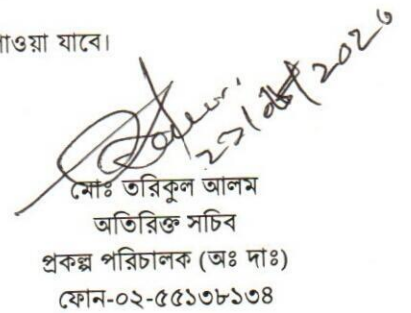 পাওয়া যাবে।
মোঃ তরিকুল আলম
অতিরিক্ত সচিব
প্রকল্প পরিচালক (অঃ দাঃ)
ফোন-০২-৫৫১৩৮১৩৪